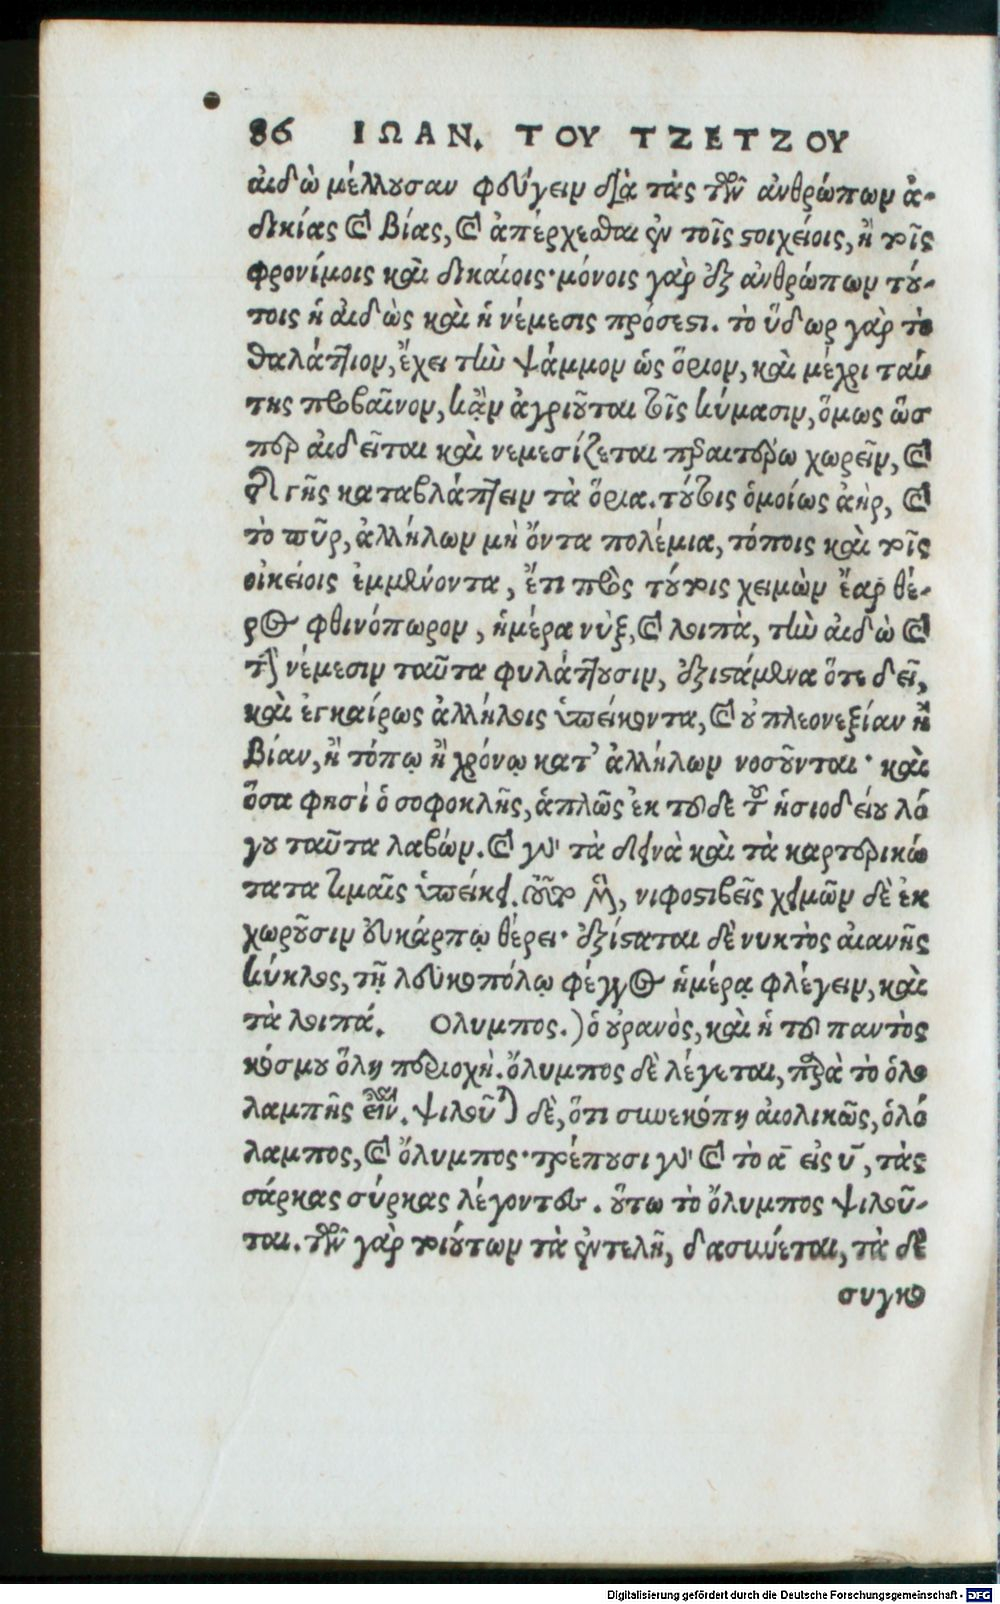 86 ΙΩΑΝ. ΤΟΥ ΤΖΕΤΖΟΥ
αιδὼ μέλλουσαν φεύγειν διὰ τὰς τῶν ἀνθρώπων ἀ-
δικίας καὶ βίας, καὶ ἀπέρχεσθαι ἐν τοῖς στοιχείοις, ἢ τοῖς
φρονίμοις καὶ δικαίοις· μόνοις γὰρ ἐξ ἀνθρώπων τού-
τοις ἡ αἰδὼς καὶ ἡ νέμεσις πρόσεστι. τὸ ὕδωρ γὰρ τὸ
θαλάττιον, ἔχει τὴν ψάμμον ὡς ὅριον, καὶ μέχρι ταύ
της προβαῖνον, κἂν ἀγριοῦται τοῖς κύμασιν, ὅμως ὥσ
περ αἰδεῖται καὶ νεμεσίζεται περαιτέρω χωρεῖν, καὶ
γῆς καταβλάπτειν τὰ ὅρια. τούτοις ὁμοίως ἀὴρ, καὶ
τὸ πῦρ, ἀλλήλων μὴ ὄντα πολέμια, τόποις καὶ τοῖς
οἰκείοις ἐμμένοντα, ἔτι πρὸς τούτοις χειμὼν ἔαρ θέ-
ρος φθινόπωρον, ἡμέρα νὺξ, καὶ λοιπὰ, τὴν αἰδὼ καὶ
τὴν νέμεσιν ταῦτα φυλάττουσιν, ἐξιστάμενα ὅτε δεῖ,
καὶ ἐγκαίρως ἀλλήλοις ὑπείκοντα, καὶ οὐ πλεονεξίαν ἢ
βίαν, ἢ τόπῳ ἢ χρόνῳ κατ' ἀλλήλων νοσοῦνται· καὶ
ὅσα φησὶ ὁ σοφοκλῆς, ἁπλῶς ἐκ τοῦδε τοῦ ἡσιοδείου λό
γου ταῦτα λαβών. καὶ γὰρ τὰ δεινὰ καὶ τὰ καρτερικώ
τατα τιμαῖς ὑπείκει. νιφοστιβεῖς χειμῶν δὲ ἐκ
χωροῦσιν εὐκάρπῳ θέρει· ἐξίσταται δὲ νυκτὸς αἰανῆς
κύκλος, τῇ λευκοπόλῳ φέγγος ἡμέρᾳ φλέγειν, καὶ
τὰ λοιπά. Ολυμπος.) ὁ οὐρανὸς, καὶ ἡ τοῦ παντὸς
κόσμου ὅλη περιοχὴ. ὄλυμπος δὲ λέγεται, παρὰ τὸ ὁλο
λαμπῆς εἶναι. ψιλοῦται δὲ, ὅτι συνεκόπη αἰολικῶς, ὁλό
λαμπος, καὶ ὄλυμπος· τρέπουσι γὰρ καὶ τὸ α εἰς υ, τὰς
σάρκας σύρκας λέγοντες. οὕτω τὸ ὄλυμπος ψιλοῦ-
ται. τῶν γὰρ τοιούτων τὰ ἐντελῆ, δασύνεται, τὰ δὲ
συγκο